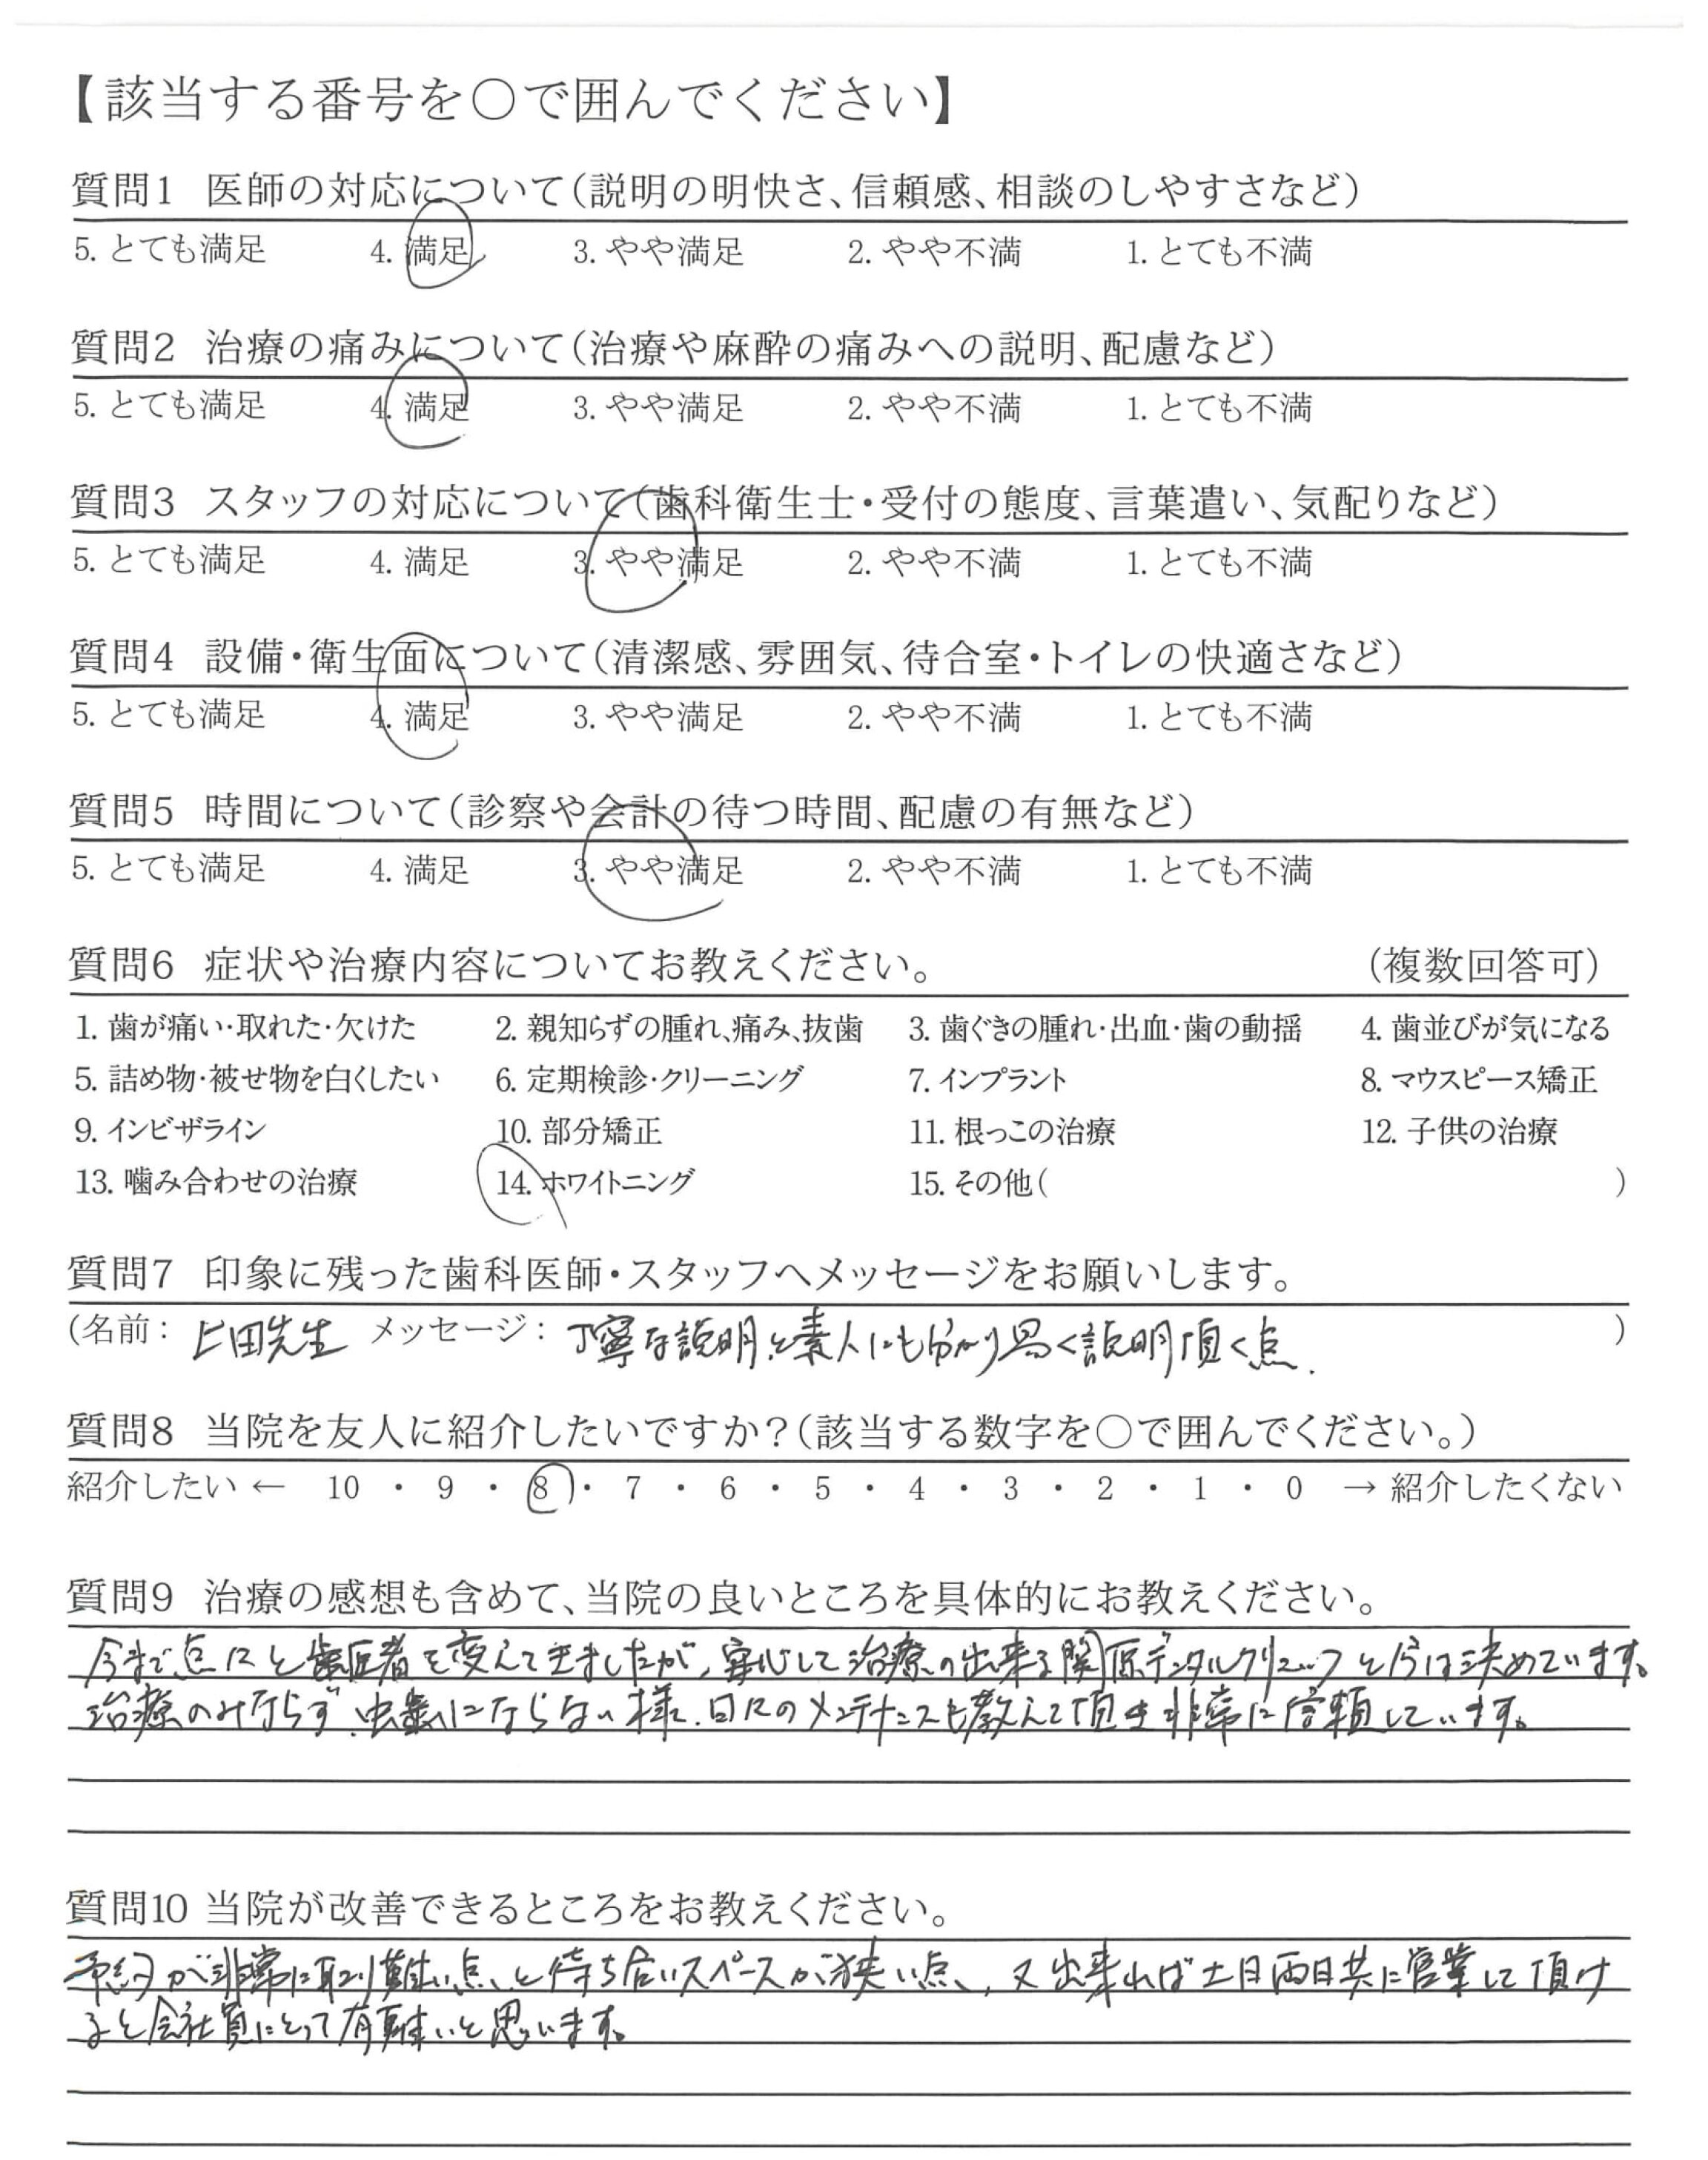 【該当する番号を○で囲んでください】
質問1 医師の対応について(説明の明快さ、信頼感、相談のしやすさなど)
5. とても満足 4. 満足 3. やや満足 2. やや不満 1. とても不満
質問2 治療の痛みについて(治療や麻酔の痛みへの説明、配慮など)
5. とても満足 4. 満足 3. やや満足 2. やや不満 1. とても不満
質問3 スタッフの対応について(歯科衛生士・受付の態度、言葉遣い、気配りなど)
5. とても満足 4. 満足 3. やや満足 2. やや不満 1. とても不満
質問4 設備・衛生面について(清潔感、雰囲気、待合室・トイレの快適さなど)
5. とても満足 4. 満足 3. やや満足 2. やや不満 1. とても不満
質問5 時間について(診察や会計の待つ時間、配慮の有無など)
5. とても満足 4. 満足 3. やや満足 2. やや不満 1. とても不満
質問6 症状や治療内容についてお教えください。 (複数回答可)
1. 歯が痛い・取れた・欠けた 2. 親知らずの腫れ、痛み、抜歯 3. 歯ぐきの腫れ・出血・歯の動揺 4. 歯並びが気になる
5. 詰め物・被せ物を白くしたい 6. 定期検診・クリーニング 7. インプラント 8. マウスピース矯正
9. インビザライン 10. 部分矯正 11. 根っこの治療 12. 子供の治療
13. 噛み合わせの治療 14. ホワイトニング 15. その他( )
質問7 印象に残った歯科医師・スタッフへメッセージをお願いします。
(名前: 上田先生 メッセージ: 丁寧な説明と素人にも分かり易く説明頂く点. )
質問8 当院を友人に紹介したいですか?(該当する数字を○で囲んでください。)
紹介したい ← 10 ・ 9 ・ 8 ・ 7 ・ 6 ・ 5 ・ 4 ・ 3 ・ 2 ・ 1 ・ 0 → 紹介したくない
質問9 治療の感想も含めて、当院の良いところを具体的にお教えください。
今まで点々と歯医者を変えて来ましたが、安心して治療の出来る関原デンタルクリニックと今は決めています。
治療のみならず、虫歯にならない様、日々のメンテナンスも教えて頂き非常に信頼しています。
質問10 当院が改善できるところをお教えください。
予約が非常に取り難い点、と待ち合いスペースが狭い点、又出来れば土日両日共に営業して頂け
ると会社員にとって有難いと思います。